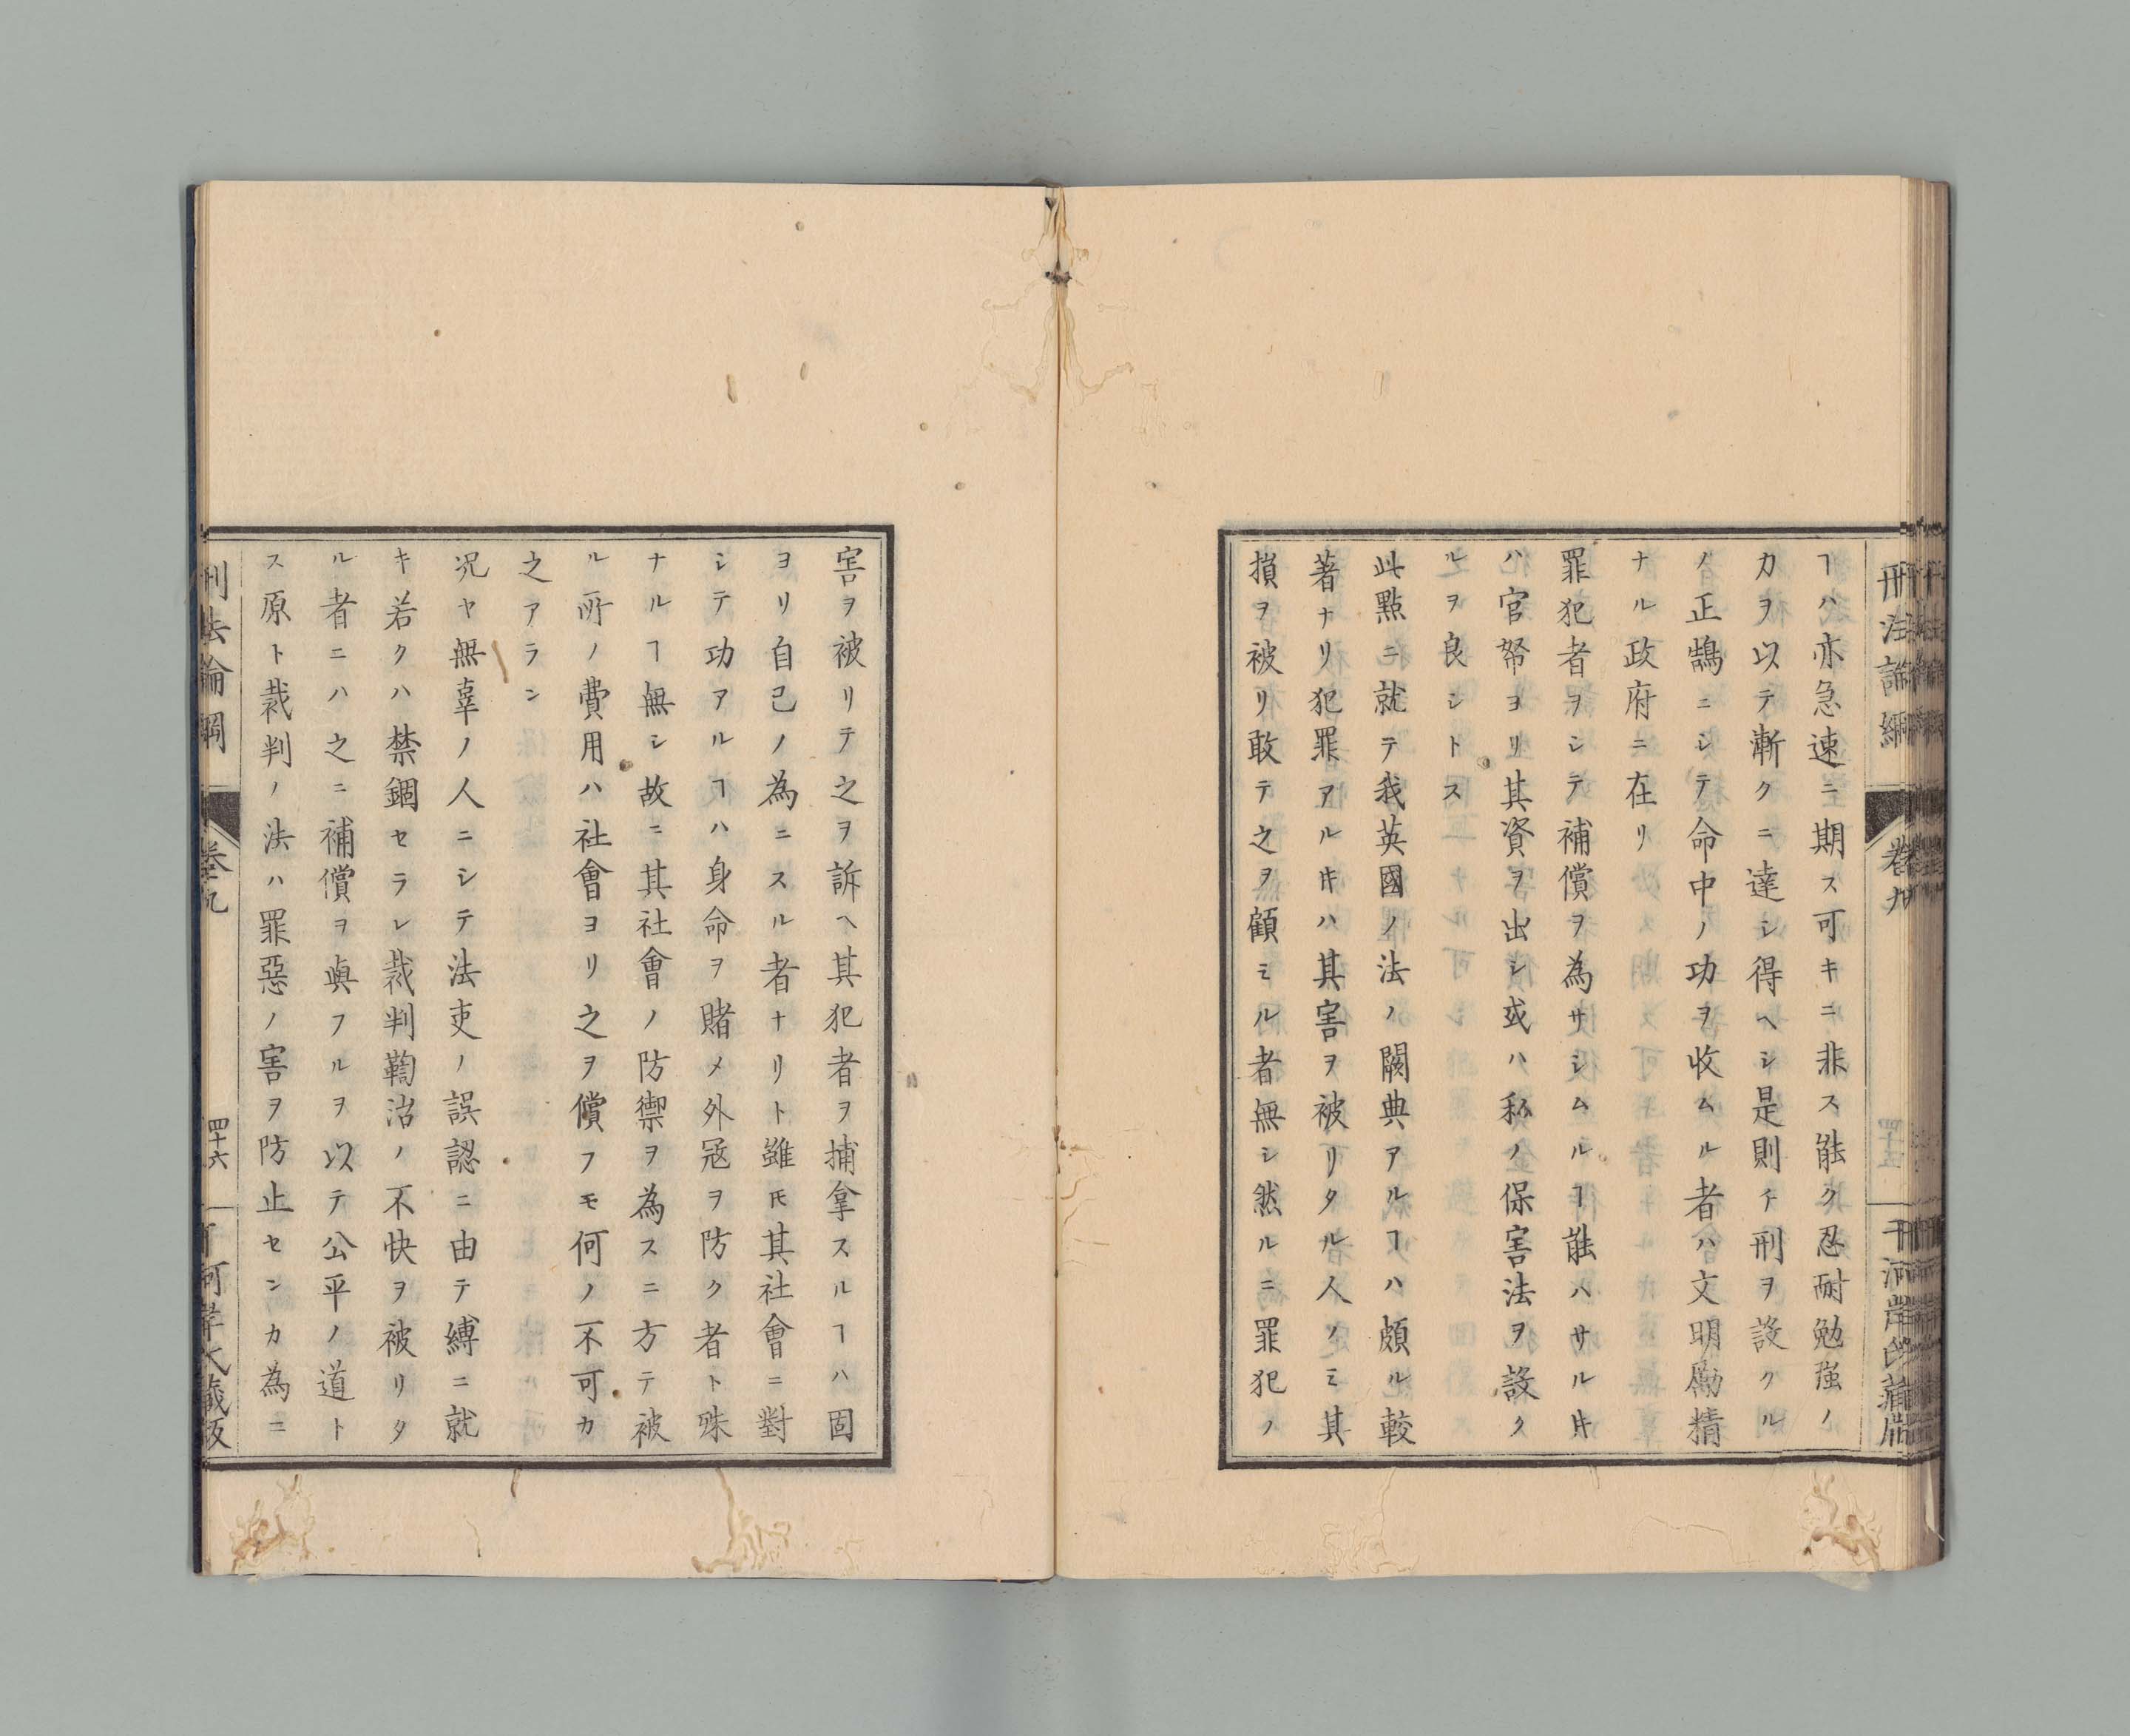 ヿハ亦急速ニ期ス可キニ非ス能ク忍耐勉強ノ
力ヲ以テ漸クニ達シ得ヘシ是則チ刑ヲ設クル
ノ正鵠ニシテ命中ノ功ヲ收ムル者ハ文明勵精
ナル政府ニ在リ
罪犯者ヲシテ補償ヲ為サシムルヿ能ハサルキ
ハ官帑ヨリ其資ヲ出シ或ハ私ノ保害法ヲ設ク
ルヲ良シトス
此點ニ就テ我英國ノ法ノ闕典アルヿハ頗ル較
著ナリ犯罪アルキハ其害ヲ被リタル人ノミ其
損ヲ被リ敢テ之ヲ顧ミル者無シ然ルニ罪犯ノ
害ヲ被リテ之ヲ訴ヘ其犯者ヲ捕拿スルヿハ固
ヨリ自己ノ為ニスル者ナリト雖𪜈其社會ニ對
シテ功アルヿハ身命ヲ賭メ外冦ヲ防ク者ト殊
ナルヿ無シ故ニ其社會ノ防禦ヲ為スニ方テ被
ル所ノ費用ハ社會ヨリ之ヲ償フモ何ノ不可カ
之アラン
况ヤ無辜ノ人ニシテ法吏ノ誤認ニ由テ縛ニ就
キ若クハ禁錮セラレ裁判鞫治ノ不快ヲ被リタ
ル者ニハ之ニ補償ヲ與フルヲ以テ公平ノ道ト
ス原ト裁判ノ法ハ罪惡ノ害ヲ防止センカ為ニ
刑法論綱
卷九
四十六